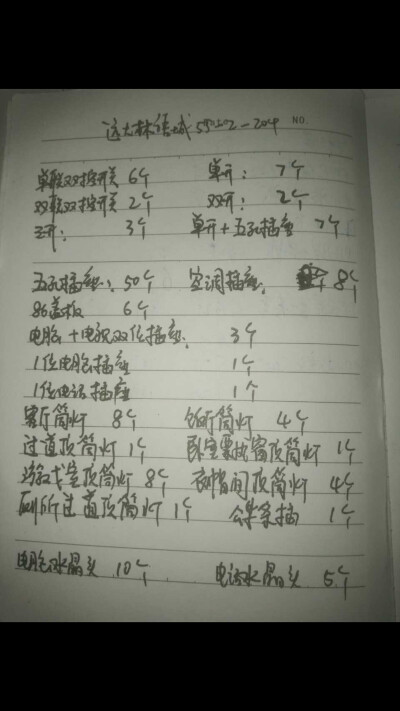 远大林语城 55#2-204 NO.
单联双控开关 6个 单开: 7个
双联双控开关 2个 双开: 2个
三开: 3个 单开+五孔插座 7个
五孔插座: 50个 空调插座: 8个
86盖板 6个
电脑+电视双位插座: 3个
1位电脑插座 1个
1位电话插座 1个
客厅筒灯 8个 饭厅筒灯 4个
过道顶筒灯 1个 卧室飘窗顶筒灯 1个
游戏室顶筒灯 8个 衣帽间顶筒灯 4个
厕所过道顶筒灯 1个 公牛插 1个
电脑水晶头 10个 电话水晶头 5个